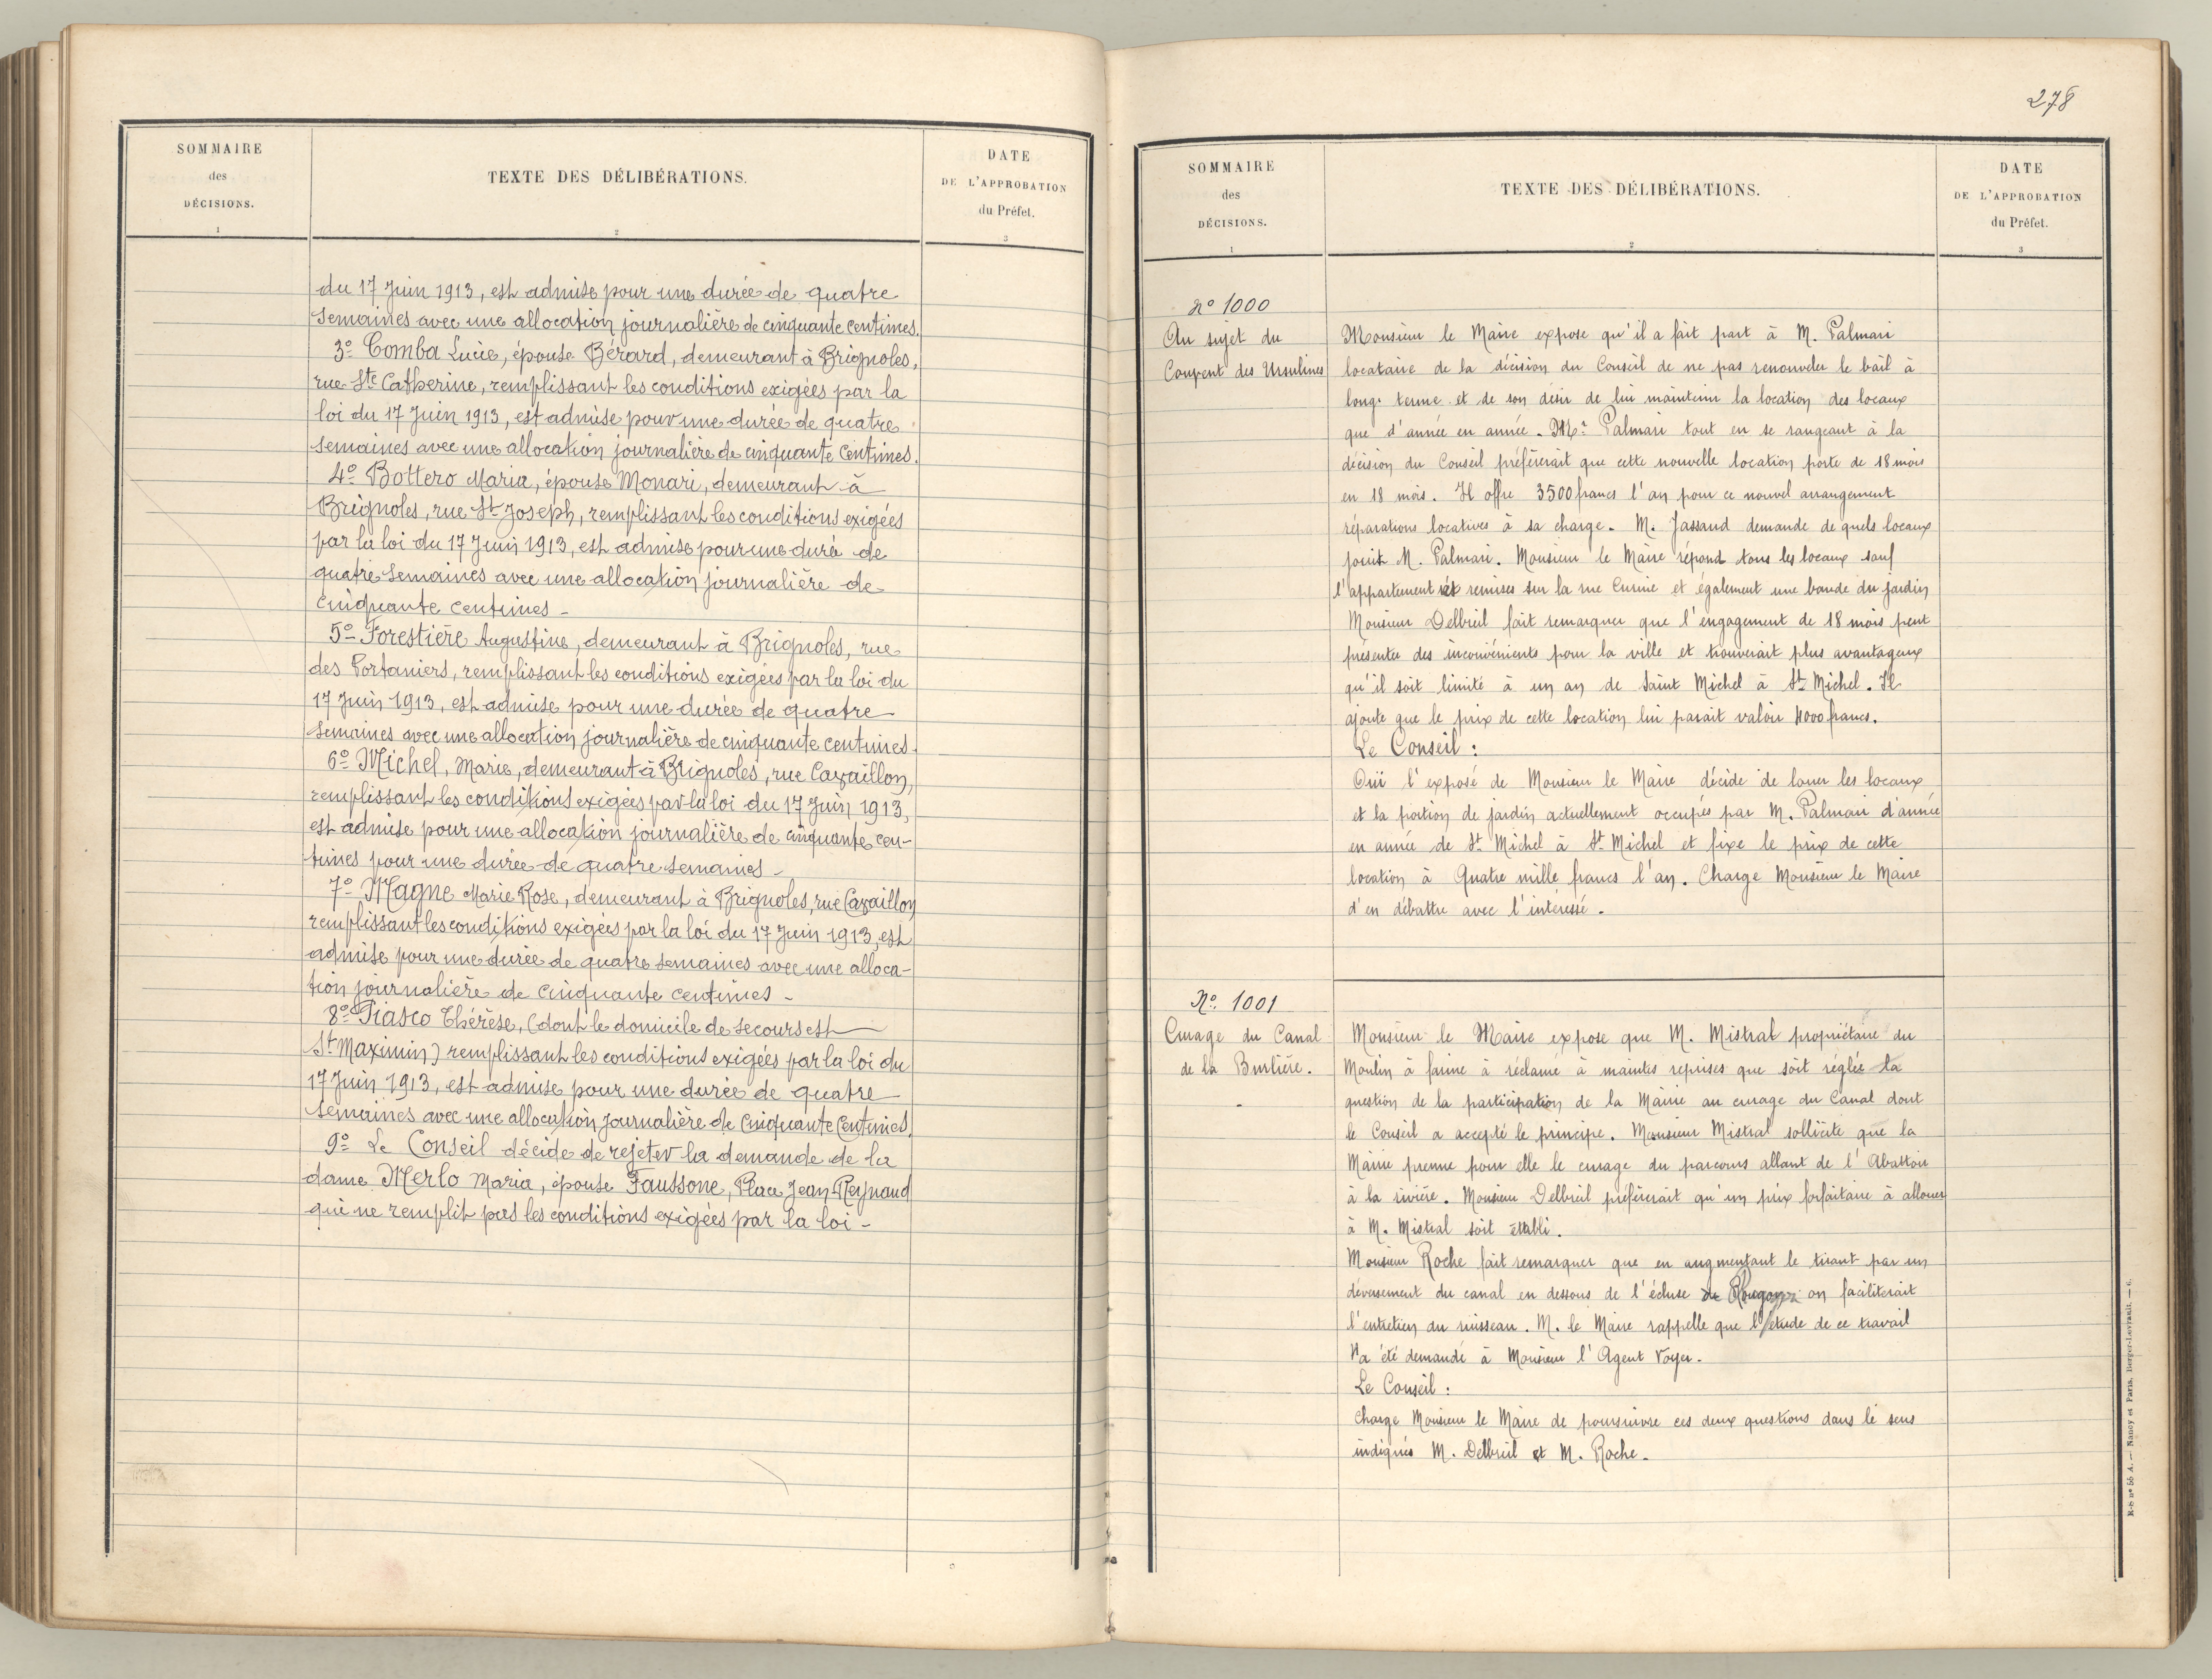 SOMMAIRE
des
DÉCISIONS.
1
TEXTE DES DÉLIBÉRATIONS.
2
DATE
DE L'APPROBATION
du Préfet.
3
du 17 Juin 1913, est admise pour une durée de quatre
semaines avec une allocation journalière de cinquante centimes.
3º Comba Lucie, épouse Bérard, demeurant à Brignoles,
rue Ste Catherine, remplissant les conditions exigées par la
loi du 17 Juin 1913, est admise pour une durée de quatre
semaines avec une allocation journalière de cinquante centimes.
4º Bottero Maria, épouse Monari, demeurant à
Brignoles, rue St Joseph, remplissant les conditions exigées
par la loi du 17 Juin 1913, est admise pour une duré de
quatre semaines avec une allocation journalière de
cinquante centimes -
5º Forestière Augustine, demeurant à Brignoles, rue
des Portaniers, remplissant les conditions exigées par la loi du
17 Juin 1913, est admise pour une durée de quatre
semaines avec une allocation journalière de cinquante centimes.
6º Michel, Marie, demeurant à Brignoles, rue Cavaillon,
remplissant les conditions exigées par la loi du 17 Juin 1913,
est admise pour une allocation journalière de cinquante cen-
times pour une durée de quatre semaines -
7º Magne Marie Rose, demeurant à Brignoles, rue Cavaillon
remplissant les conditions exigées par la loi du 17 Juin 1913, est
admise pour une durée de quatre semaines avec une alloca-
tion journalière de cinquante centimes -
8º Fiasco Thérèse, (dont le domicile de secours est
St Maximin) remplissant les conditions exigées par la loi du
17 Juin 1913, est admise pour une durée de quatre
semaines avec une allocation journalière de cinquante centimes.
9º Le Conseil décide de rejeter la demande de la
dame Merlo Maria, épouse Faussone, Place Jean Reynaud
qui ne remplit pas les conditions exigées par la loi -
278
SOMMAIRE
des
DÉCISIONS.
1
TEXTE DES DÉLIBÉRATIONS.
2
DATE
DE L'APPROBATION
du Préfet.
3
Nº 1000
Au sujet du
Couvent des Ursulines
Monsieur le Maire expose qu'il a fait part à M. Palmari
locataire de la décision du Conseil de ne pas renouveler le bail à
long terme et de son désir de lui maintenir la location des locaux
que d'année en année. Mr Palmari tout en se rangeant à la
décision du Conseil préfèrerait que cette nouvelle location porte de 18 mois
en 18 mois. Il offre 3500 francs l'an pour ce nouvel arrangement
réparations locatives à sa charge. M. Jassaud demande de quels locaux
jouit M. Palmari. Monsieur le Maire répond tous les locaux sauf
l'appartement et remises sur la rue Curine et également une bande du jardin
Monsieur Delbreil fait remarquer que l'engagement de 18 mois peut
présenter des inconvénients pour la ville et trouverait plus avantageux
qu'il soit limité à un an de Saint Michel à St Michel. Il
ajoute que le prix de cette location lui parait valoir 4000 francs.
Le Conseil :
Oui l'exposé de Monsieur le Maire décide de louer les locaux
et la portion de jardin actuellement occupés par M. Palmari d'année
en année de St Michel à St Michel et fixe le prix de cette
location à Quatre mille francs l'an. Charge Monsieur le Maire
d'en débattre avec l'interessé.
Nº 1001
Curage du Canal
de la Burlière.
Monsieur le Maire expose que M. Mistral propriétaire du
Moulin à farine à réclamé à maintes reprises que soit réglée la
question de la participation de la Mairie au curage du Canal dont
le Conseil a accepté le principe. Monsieur Mistral sollicite que la
Mairie prenne pour elle le curage du parcours allant de l'Abattoir
à la rivière. Monsieur Delbreil préfèrerait qu'un prix forfaitaire à allouer
à M. Mistral soit établi.
Monsieur Roche fait remarquer que en augmentant le tirant par un
déversement du canal en dessous de l'écluse on faciliterait
l'entretien du ruisseau. M. le Maire rappelle que l'étude de ce travail
a été demandé à Monsieur l'Agent Voyer.
Le Conseil :
Charge Monsieur le Maire de poursuivre ces deux questions dans le sens
indiqués M. Delbreil et M. Roche.
R-é nº 55 A. — Nancy et Paris, Berger-Levrault. — 6.